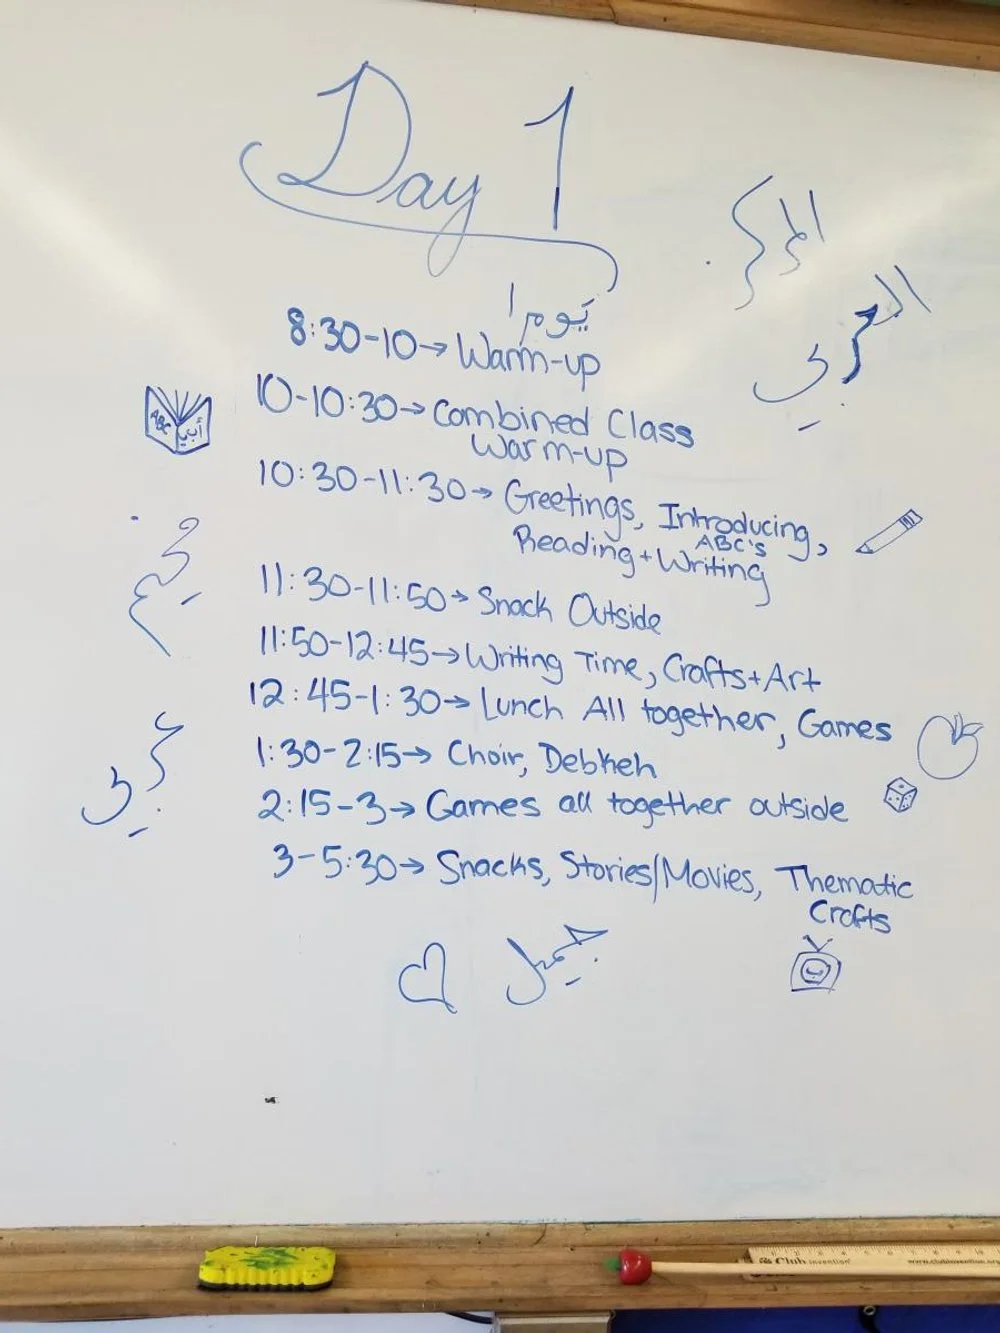 Day 1
يوم ١
8:30-10→ Warm-up
10-10:30→ Combined Class
Warm-up
ABC
أ ب ت
10:30-11:30→ Greetings, Introducing,
ABC's
Reading+Writing
11:30-11:50→ Snack Outside
11:50-12:45→ Writing Time, Crafts+Art
12:45-1:30→ Lunch All together, Games
1:30-2:15→ Choir, Debkeh
2:15-3→ Games all together outside
3-5:30→ Snacks, Stories/Movies, Thematic
Crafts
جميل
ب
Club invention
www.clubinvention.org